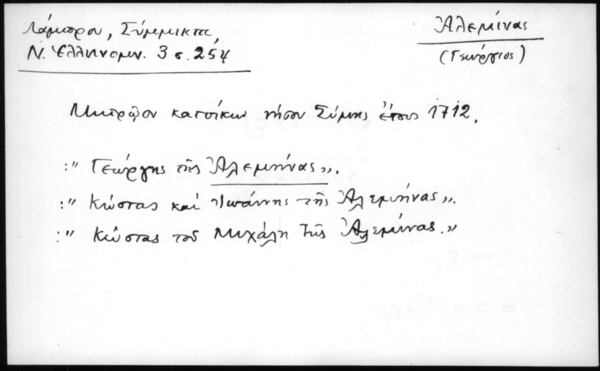 Λάμπρου, Σύμμικτα,
Ν. Ἑλληνομν. 3 σ. 254
Ἀλεμίνας
(Γεώργιος)
Μητρῷον κατοίκων νήσου Σύμης ἔτους 1712.
:" Γεώργης τῆς Ἀλεμήνας".
:" Κώστας καί Ἰωάννης τῆς Ἀλεμήνας".
:" Κώστας τοῦ Μιχάλη τῆς Ἀλεμίνας."